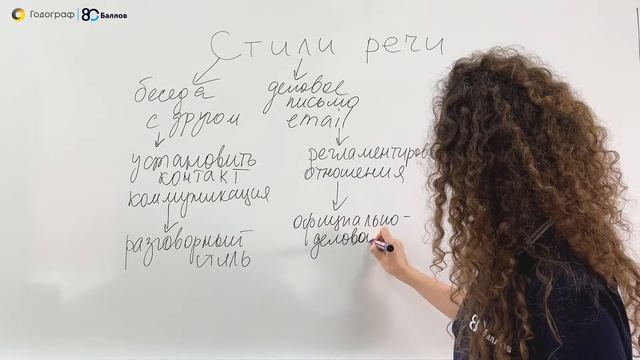 Годограф 80 Баллов
Стили речи
беседа
с другом
установить
контакт
коммуникация
разговорный
стиль
деловое
письмо
email
регламентиров
отношения
официально-
делово
Баллов